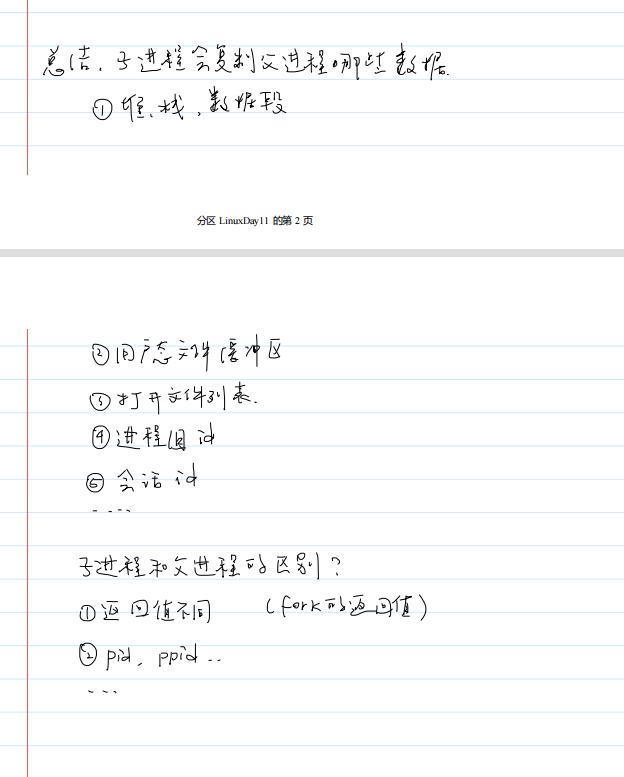 总结，子进程会复制父进程哪些数据.
① 堆、栈，数据段
分区 LinuxDay11 的第 2 页
② 用户态文件缓冲区
③ 打开文件列表.
④ 进程组 id
⑤ 会话 id
.....
子进程和父进程的区别？
① 返回值不同 (fork的返回值)
② pid、ppid ..
...